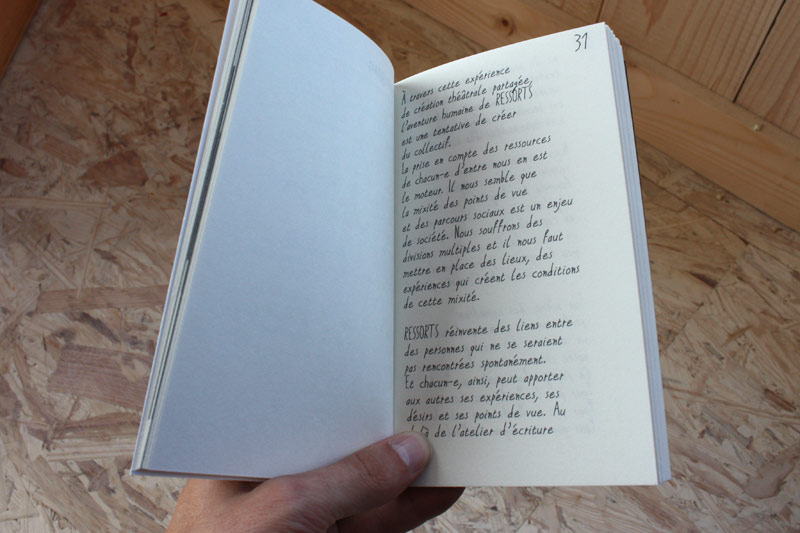 31
À travers cette expérience
de création théâtrale partagée,
l'aventure humaine de RESSORTS
est une tentative de créer
du collectif.
La prise en compte des ressources
de chacun-e d'entre nous en est
le moteur. Il nous semble que
la mixité des points de vue
et des parcours sociaux est un enjeu
de société. Nous souffrons des
divisions multiples et il nous faut
mettre en place des lieux, des
expériences qui créent les conditions
de cette mixité.
RESSORTS réinvente des liens entre
des personnes qui ne se seraient
pas rencontrées spontanément.
Et chacun-e, ainsi, peut apporter
aux autres ses expériences, ses
désirs et ses points de vue. Au
de l'atelier d'écriture